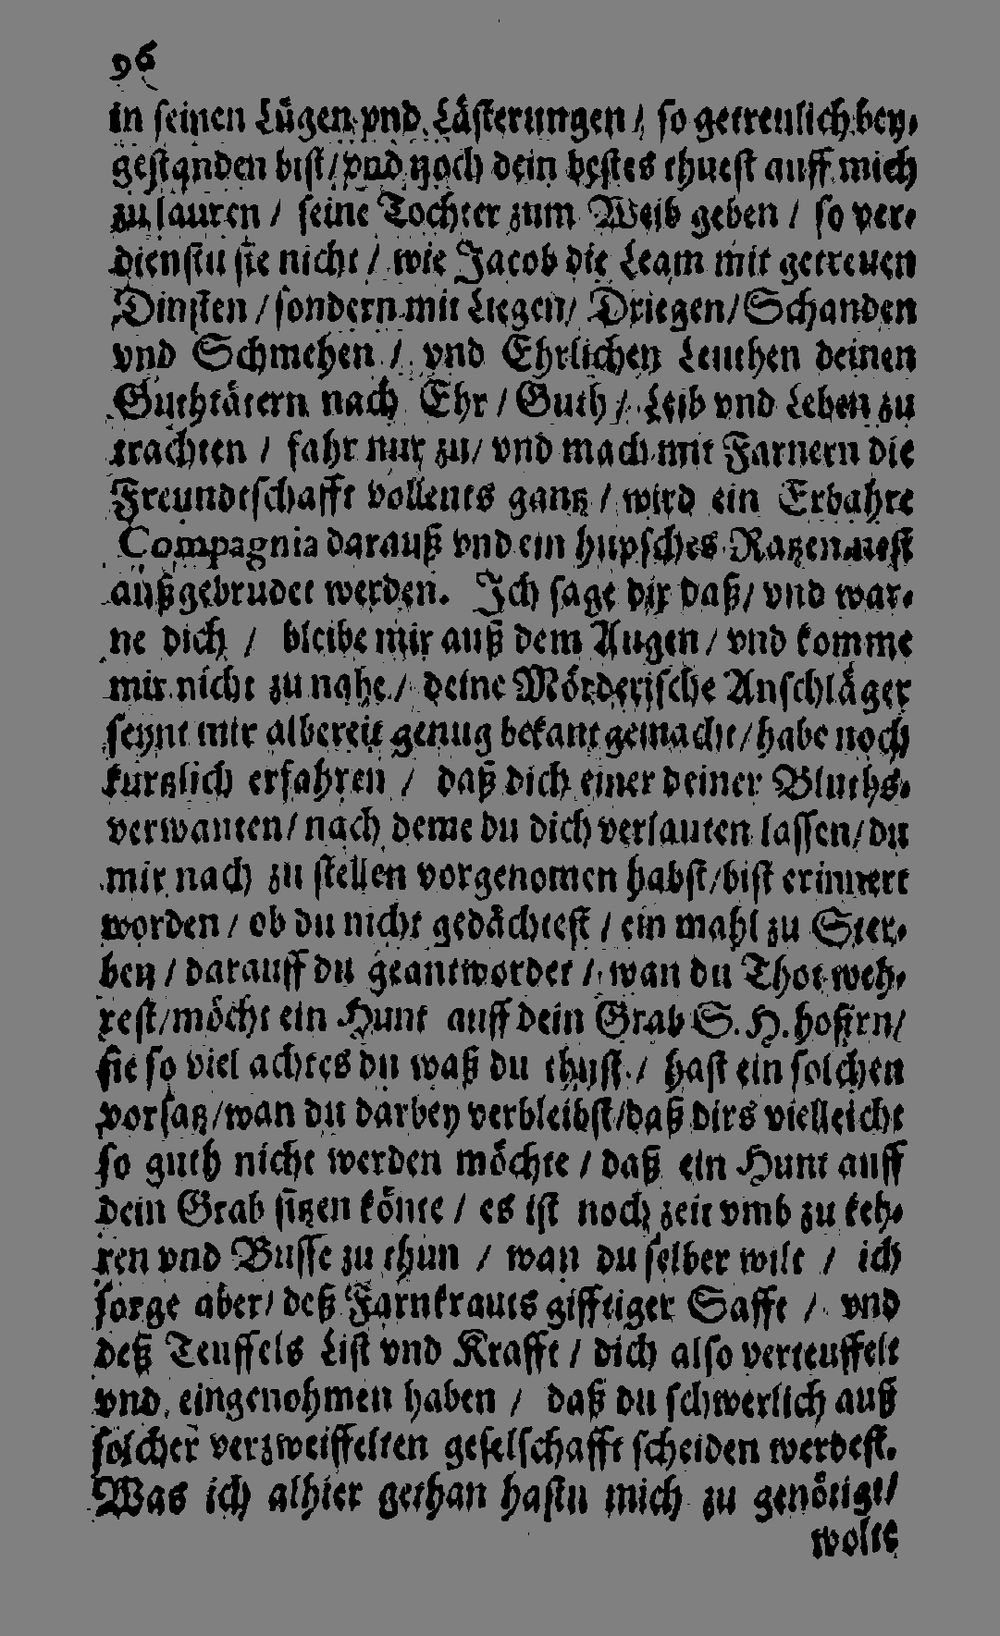 96
in seinen Lügen vnd Lästerungen / so getreulich bey-
gestanden bist / vnd noch dein bestes thuest auff mich
zu lauren / seine Tochter zum Weib geben / so ver-
dienstu sie nicht / wie Jacob die Leam mit getreuen
Dinsten / sondern mit Liegen / Driegen / Schanden
vnd Schmehen / vnd Ehrlichen Leuthen deinen
Guthtätern nach Ehr / Guth / Leib vnd Leben zu
trachten / fahr nur zu / vnd mach mit Farnern die
Freundtschafft vollents gantz / wird ein Erbahre
Compagnia darauß vnd ein hupsches Ratzennest
außgebrudet werden. Ich sage dir daß / vnd war-
ne dich / bleibe mir auß dem Augen / vnd komme
mir nicht zu nahe / deine Mörderische Anschläger
seynt mir albereit genug bekant gemacht / habe noch
kurtzlich erfahren / daß dich einer deiner Bluths-
verwanten / nach deme du dich verlauten lassen / du
mir nach zu stellen vorgenomen habst / bist erinnert
worden / ob du nicht gedächtest / ein mahl zu Ster-
ben / darauff du geantwordet / wan du Thot weh-
rest / möcht ein Hunt auff dein Grab S. H. hofirn /
sie so viel achtes du waß du thust / hast ein solchen
vorsatz / wan du darbey verbleibst / daß dirs vielleicht
so guth nicht werden möchte / daß ein Hunt auff
dein Grab sitzen könte / es ist noch zeit vmb zu keh-
ren vnd Busse zu thun / wan du selber wilt / ich
sorge aber / deß Farnkrauts gifftiger Safft / vnd
deß Teuffels List vnd Krafft / dich also verteuffelt
vnd eingenohmen haben / daß du schwerlich auß
solcher verzweiffelten geselschafft scheiden werdest.
Was ich alhier gethan hastu mich zu genötigt /
wolte